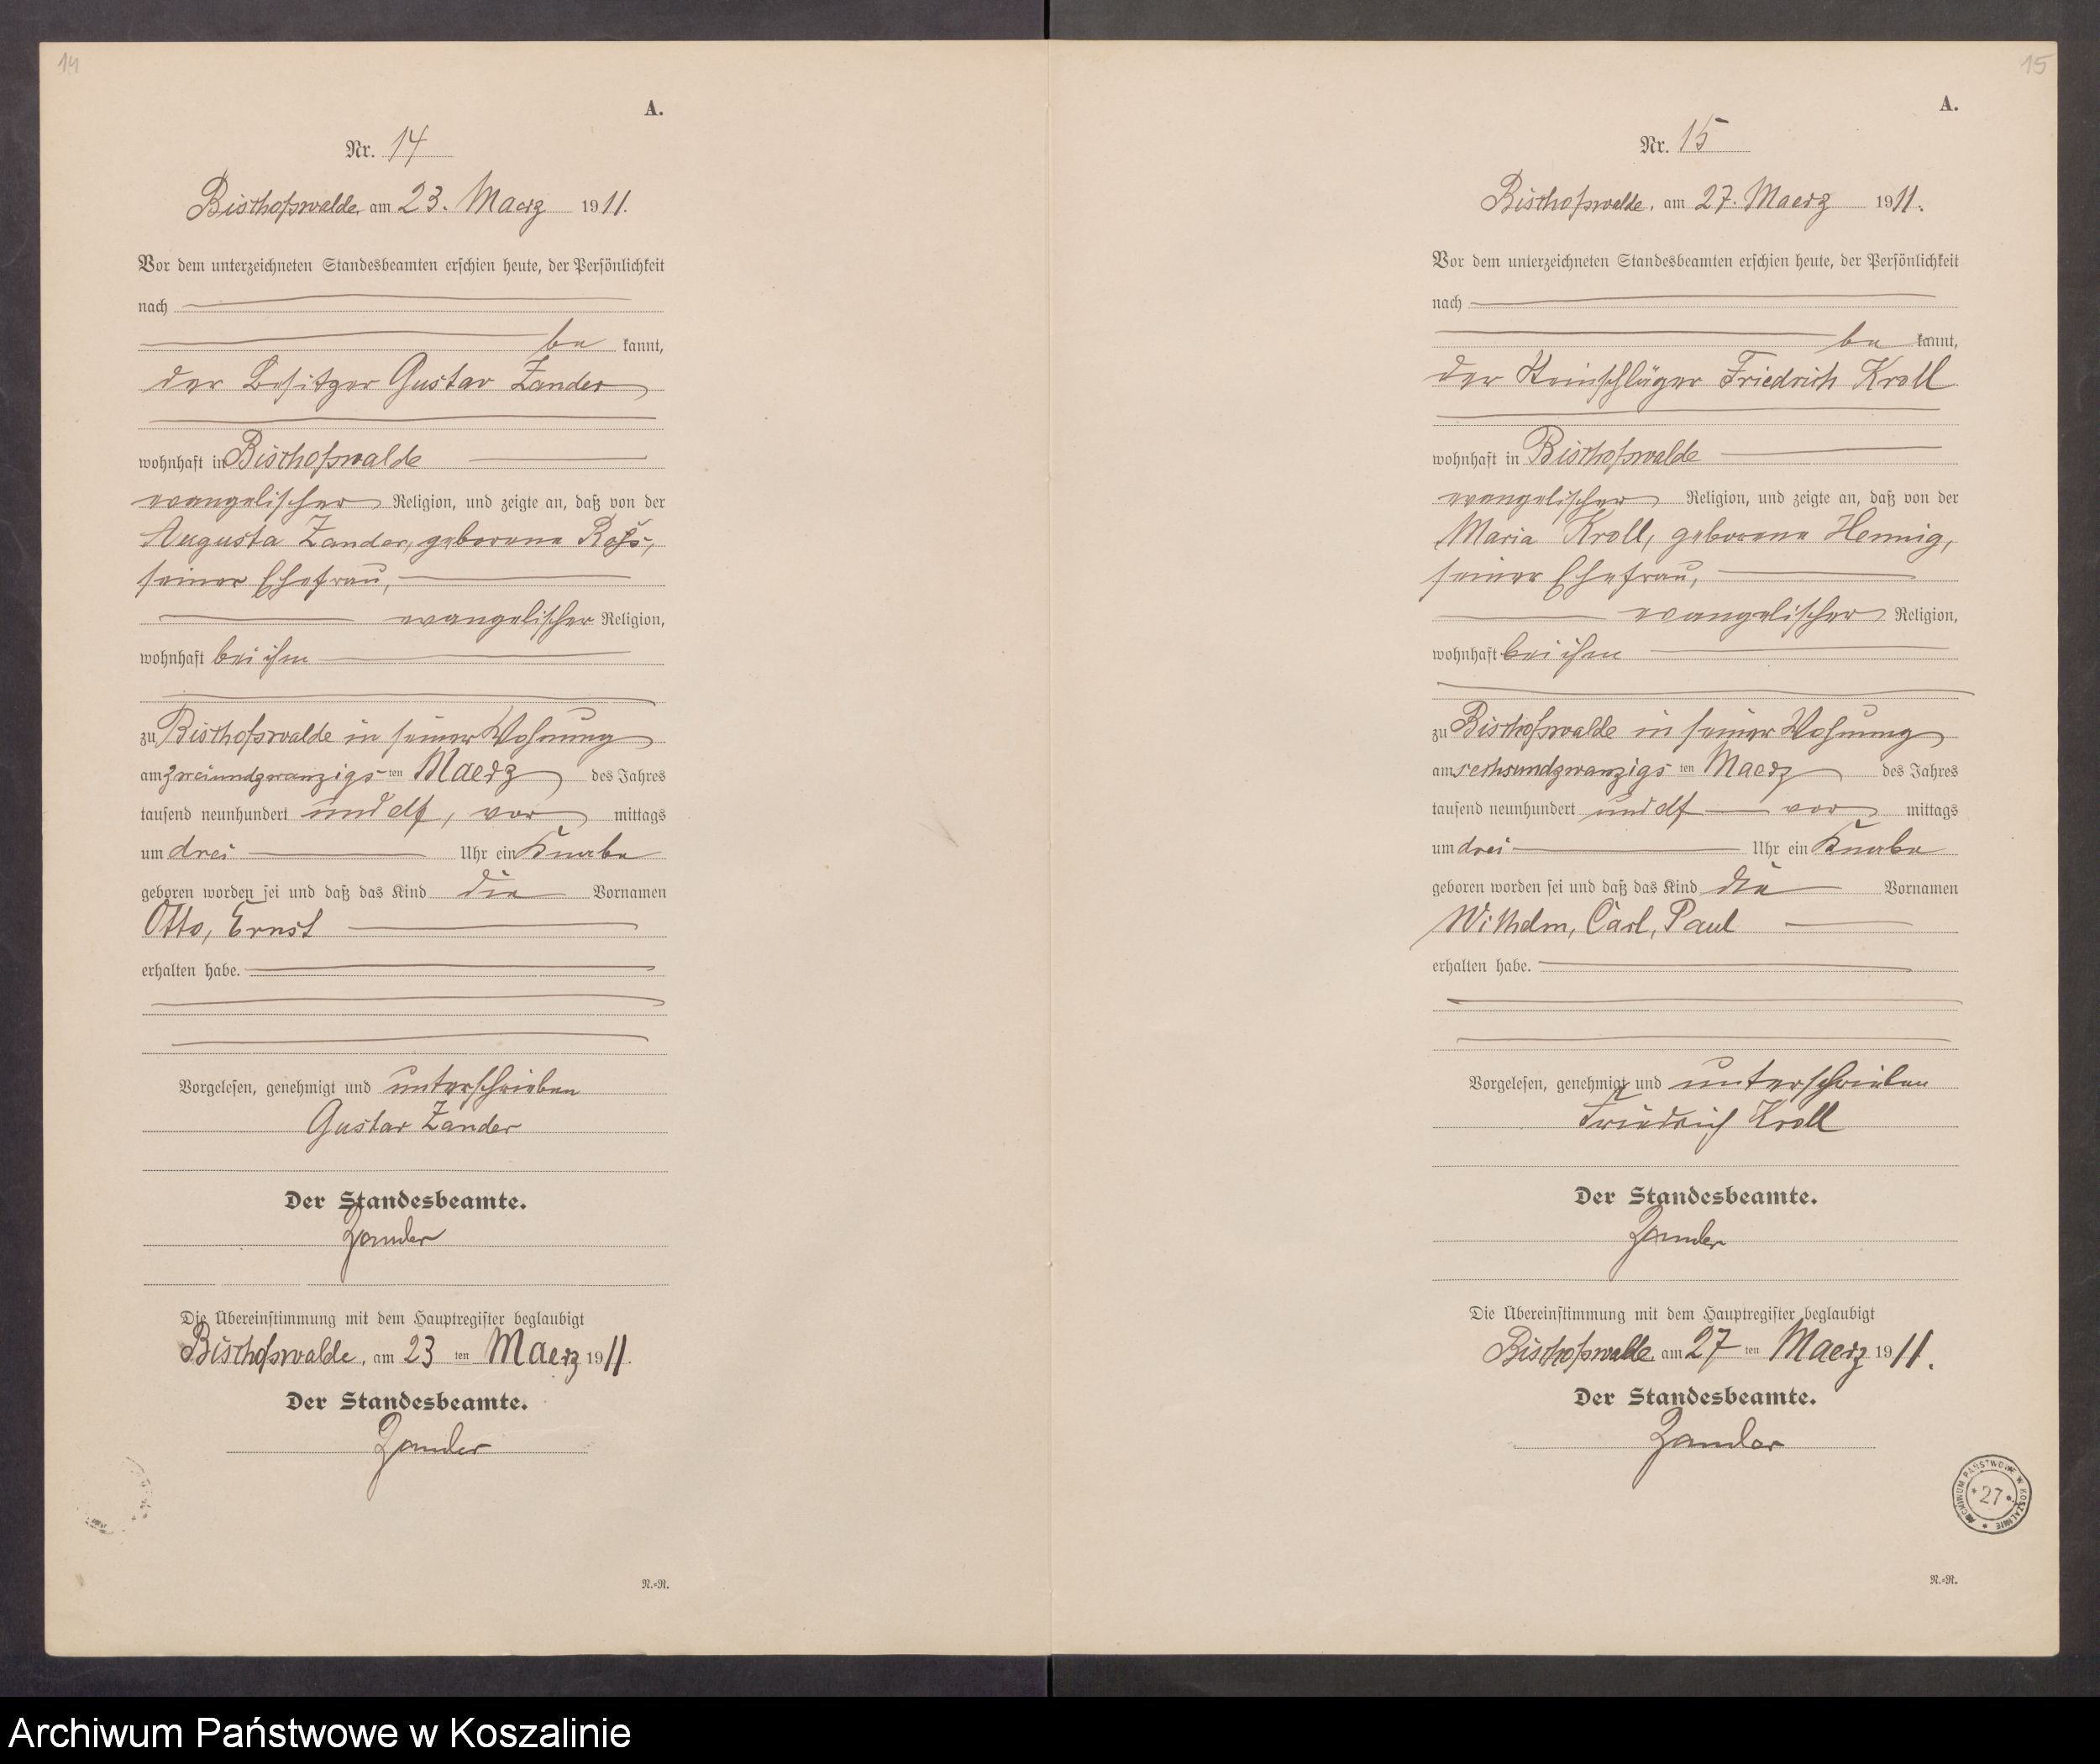 14
A.
Nr. 14
Bischofswalde, am 23. Maerz 1911.
Vor dem unterzeichneten Standesbeamten erschien heute, der Persönlichkeit
nach
be kannt,
der Besitzer Gustav Zander
wohnhaft in Bischofswalde
evangelischer Religion, und zeigte an, daß von der
Augusta Zander, geborene
seiner Ehefrau,
evangelischer Religion,
wohnhaft bei ihm
zu Bischofswalde in seiner Wohnung
am zweiundzwanzigs ten Maerz des Jahres
tausend neunhundert und elf, vor mittags
um drei Uhr ein Knabe
geboren worden sei und daß das Kind die Vornamen
Otto, Ernst
erhalten habe.
Vorgelesen, genehmigt und unterschrieben
Gustav Zander
Der Standesbeamte.
Zander
Die Übereinstimmung mit dem Hauptregister beglaubigt
Bischofswalde, am 23 ten Maerz 1911.
Der Standesbeamte.
Zander
R.=R.
15
A.
Nr. 15
Bischofswalde, am 27. Maerz 1911.
Vor dem unterzeichneten Standesbeamten erschien heute, der Persönlichkeit
nach
be kannt,
der Steinschläger Friedrich Kroll
wohnhaft in Bischofswalde
evangelischer Religion, und zeigte an, daß von der
Maria Kroll, geborene Hennig,
seiner Ehefrau,
evangelischer Religion,
wohnhaft bei ihm
zu Bischofswalde in seiner Wohnung
am sechsundzwanzigs ten Maerz des Jahres
tausend neunhundert und elf vor mittags
um drei Uhr ein Knabe
geboren worden sei und daß das Kind die Vornamen
Wilhelm, Carl, Paul
erhalten habe.
Vorgelesen, genehmigt und unterschrieben
Friedrich Kroll
Der Standesbeamte.
Zander
Die Übereinstimmung mit dem Hauptregister beglaubigt
Bischofswalde am 27 ten Maerz 1911.
Der Standesbeamte.
Zander
ARCHIWUM PAŃSTWOWE W KOSZALINIE
* 27 *
R.=R.
Archiwum Państwowe w Koszalinie